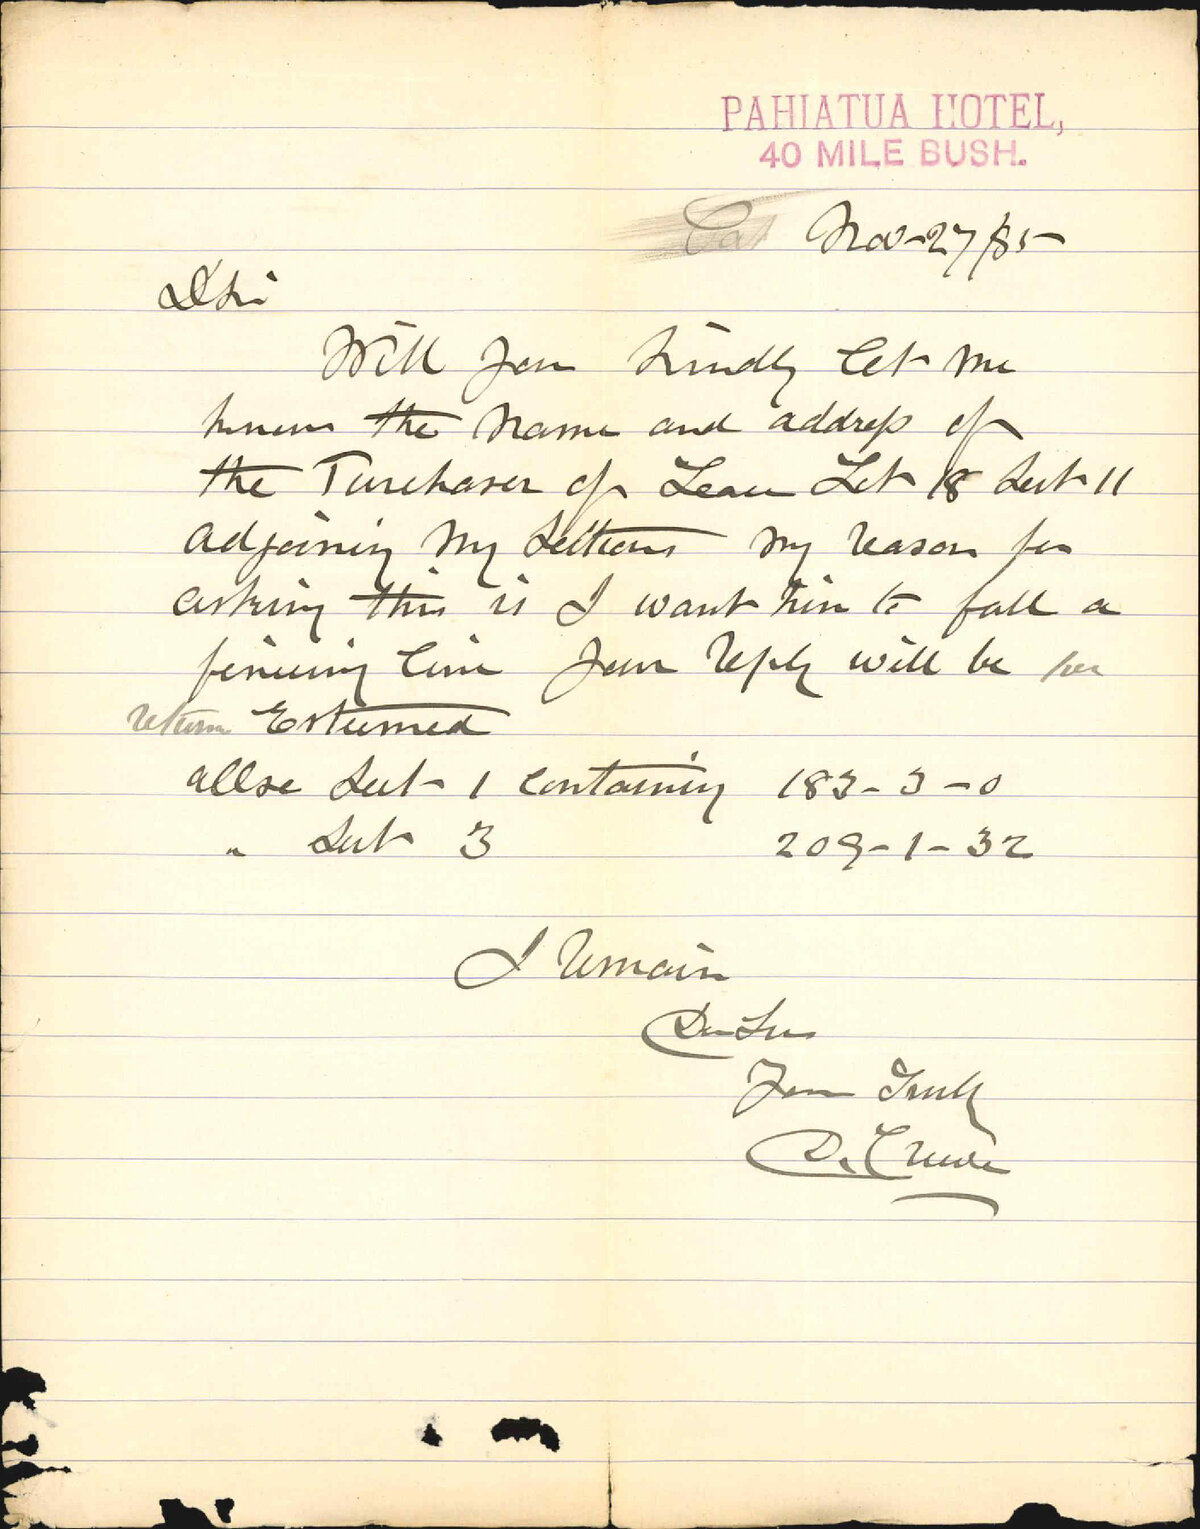 PAHIATUA HOTEL,
40 MILE BUSH.
Nov-27/85
D Sir
Will you kindly let me
know the name and address of
the Purchaser of Lease Lot 18 Sect 11
adjoining my Sections my reason for
asking this is I want him to fall a
fencing line your reply will be per
return Esteemed
allso Sect 1 containing 183-3-0
" Sect 3 209-1-32
I remain
Dr Sir
Your Truly
D. Crewe